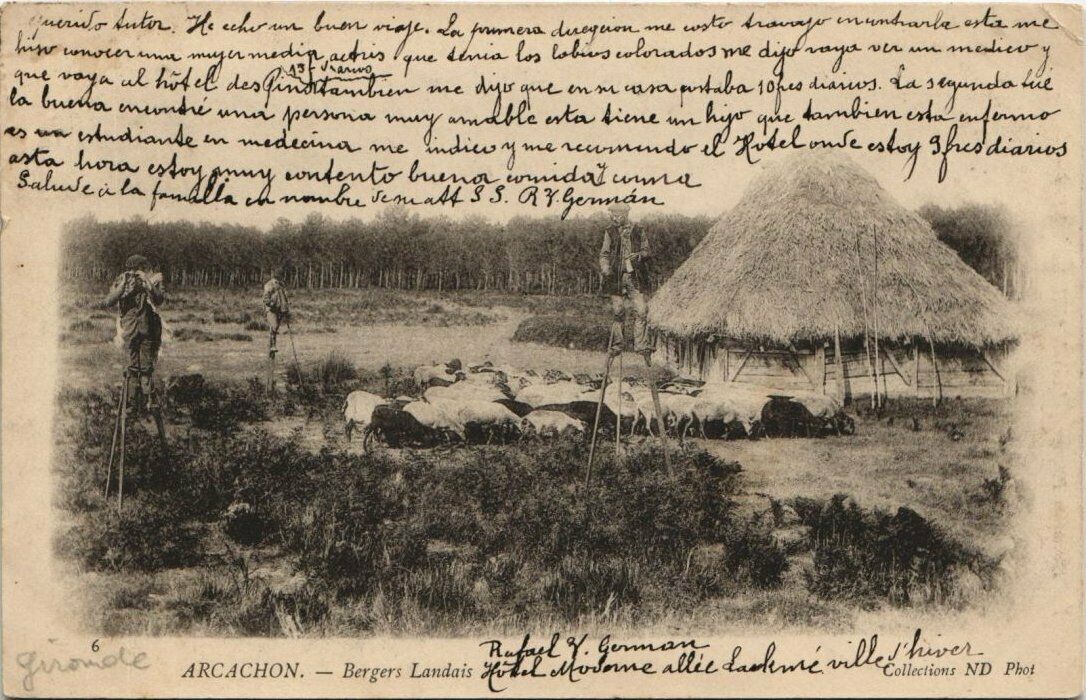 querido tutor. He echo un buen viage. La primera direccion me costo travajo encuntrarla esta me
hiso conocer una mujer media actris que tenia los labios colorados me dijo vaya ver un medico y
que vaya al hôtel des Pins tambien me dijo que en su casa costaba 10 fres diarios. La segunda fué
13 f diarios
la buena encontré una persona muy amable esta tiene un hijo que tambien esta enfermo
es un estudiante en medecina me indico y me recomendo el Hotel onde estoy 9 fres diarios
asta hora estoy muy contento buena comida y cama
Salude á la familla en nombre de S S. R V. Germán
6
Gironde
ARCACHON. — Bergers Landais
Rafael V. German
Hôtel Moderne allée Lackmé ville d'hiver
Collections ND Phot